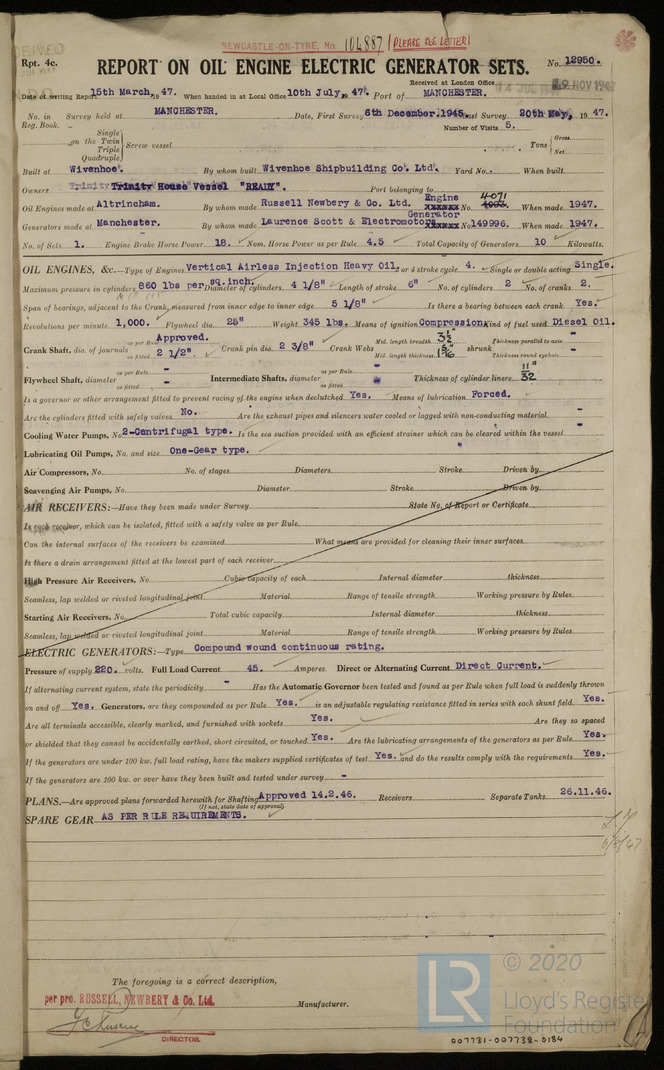 NEWCASTLE-ON-TYNE, No. 104887 PLEASE SEE LETTER
Rpt. 4c. REPORT ON OIL ENGINE ELECTRIC GENERATOR SETS. No. 12950.
Received at London Office NOV 194
Date of writing Report 15th March, 1947. When handed in at Local Office 10th July, 1947. Port of MANCHESTER.
No. in Reg. Book. Survey held at MANCHESTER. Date, First Survey 6th December, 1945. Last Survey 20th May, 1947.
Number of Visits 5.
Single
on the Twin
Triple
Quadruple
Screw vessel Tons Gross Net
Built at Wivenhoe. By whom built Wivenhoe Shipbuilding Co. Ltd. Yard No. When built
Owners Trinity House Vessel "READY". Port belonging to
Oil Engines made at Altrincham. By whom made Russell Newbery & Co. Ltd. Engine No. 4071 When made 1947.
Generators made at Manchester. By whom made Laurence Scott & Electromotors Generator No. 149996. When made 1947.
No. of Sets 1. Engine Brake Horse Power 18. Nom. Horse Power as per Rule 4.5 Total Capacity of Generators 10 Kilowatts.
OIL ENGINES, &c.—Type of Engines Vertical Airless Injection Heavy Oil, 2 or 4 stroke cycle 4. Single or double acting Single.
Maximum pressure in cylinders 860 lbs per sq.inch. Diameter of cylinders 4 1/8" Length of stroke 6" No. of cylinders 2 No. of cranks 2.
Span of bearings, adjacent to the Crank, measured from inner edge to inner edge 5 1/8" Is there a bearing between each crank Yes.
Revolutions per minute 1,000. Flywheel dia. 25" Weight 345 lbs. Means of ignition Compression Kind of fuel used Diesel Oil.
Crank Shaft, dia. of journals as per Rule Approved. as fitted 2 1/2". Crank pin dia. 2 3/8" Crank Webs Mid. length breadth Mid. length thickness shrunk Thickness parallel to axis - Thickness round eyehole -
Flywheel Shaft, diameter as per Rule - as fitted - Intermediate Shafts, diameter as per Rule - as fitted Thickness of cylinder liners 11/32"
Is a governor or other arrangement fitted to prevent racing of the engine when declutched Yes. Means of lubrication Forced.
Are the cylinders fitted with safety valves No. Are the exhaust pipes and silencers water cooled or lagged with non-conducting material -
Cooling Water Pumps, No. 2-Centrifugal type. Is the sea suction provided with an efficient strainer which can be cleared within the vessel -
Lubricating Oil Pumps, No. and size One-Gear type.
Air Compressors, No. No. of stages Diameters Stroke Driven by
Scavenging Air Pumps, No. Diameter Stroke Driven by
AIR RECEIVERS:—Have they been made under Survey State No. of Report or Certificate
Is each receiver, which can be isolated, fitted with a safety valve as per Rule
Can the internal surfaces of the receivers be examined What means are provided for cleaning their inner surfaces
Is there a drain arrangement fitted at the lowest part of each receiver
High Pressure Air Receivers, No. Cubic capacity of each Internal diameter thickness
Seamless, lap welded or riveted longitudinal joint Material Range of tensile strength Working pressure by Rules
Starting Air Receivers, No. Total cubic capacity Internal diameter thickness
Seamless, lap welded or riveted longitudinal joint Material Range of tensile strength Working pressure by Rules
ELECTRIC GENERATORS:—Type Compound wound continuous rating.
Pressure of supply 220. volts. Full Load Current 45. Amperes. Direct or Alternating Current Direct Current.
If alternating current system, state the periodicity - Has the Automatic Governor been tested and found as per Rule when full load is suddenly thrown
on and off Yes. Generators, are they compounded as per Rule Yes. is an adjustable regulating resistance fitted in series with each shunt field Yes.
Are all terminals accessible, clearly marked, and furnished with sockets Yes. Are they so spaced
or shielded that they cannot be accidentally earthed, short circuited, or touched Yes. Are the lubricating arrangements of the generators as per Rule Yes.
If the generators are under 100 kw. full load rating, have the makers supplied certificates of test Yes. and do the results comply with the requirements Yes.
If the generators are 100 kw. or over have they been built and tested under survey -
PLANS.—Are approved plans forwarded herewith for Shafting Approved 14.2.46. Receivers Separate Tanks 26.11.46.
(If not, state date of approval)
SPARE GEAR AS PER RULE REQUIREMENTS.
The foregoing is a correct description,
per pro. RUSSELL, NEWBERY & Co. Ltd. Manufacturer.
DIRECTOR.
LR © 2020
Lloyd's Register
Foundation
007731-007738-0184